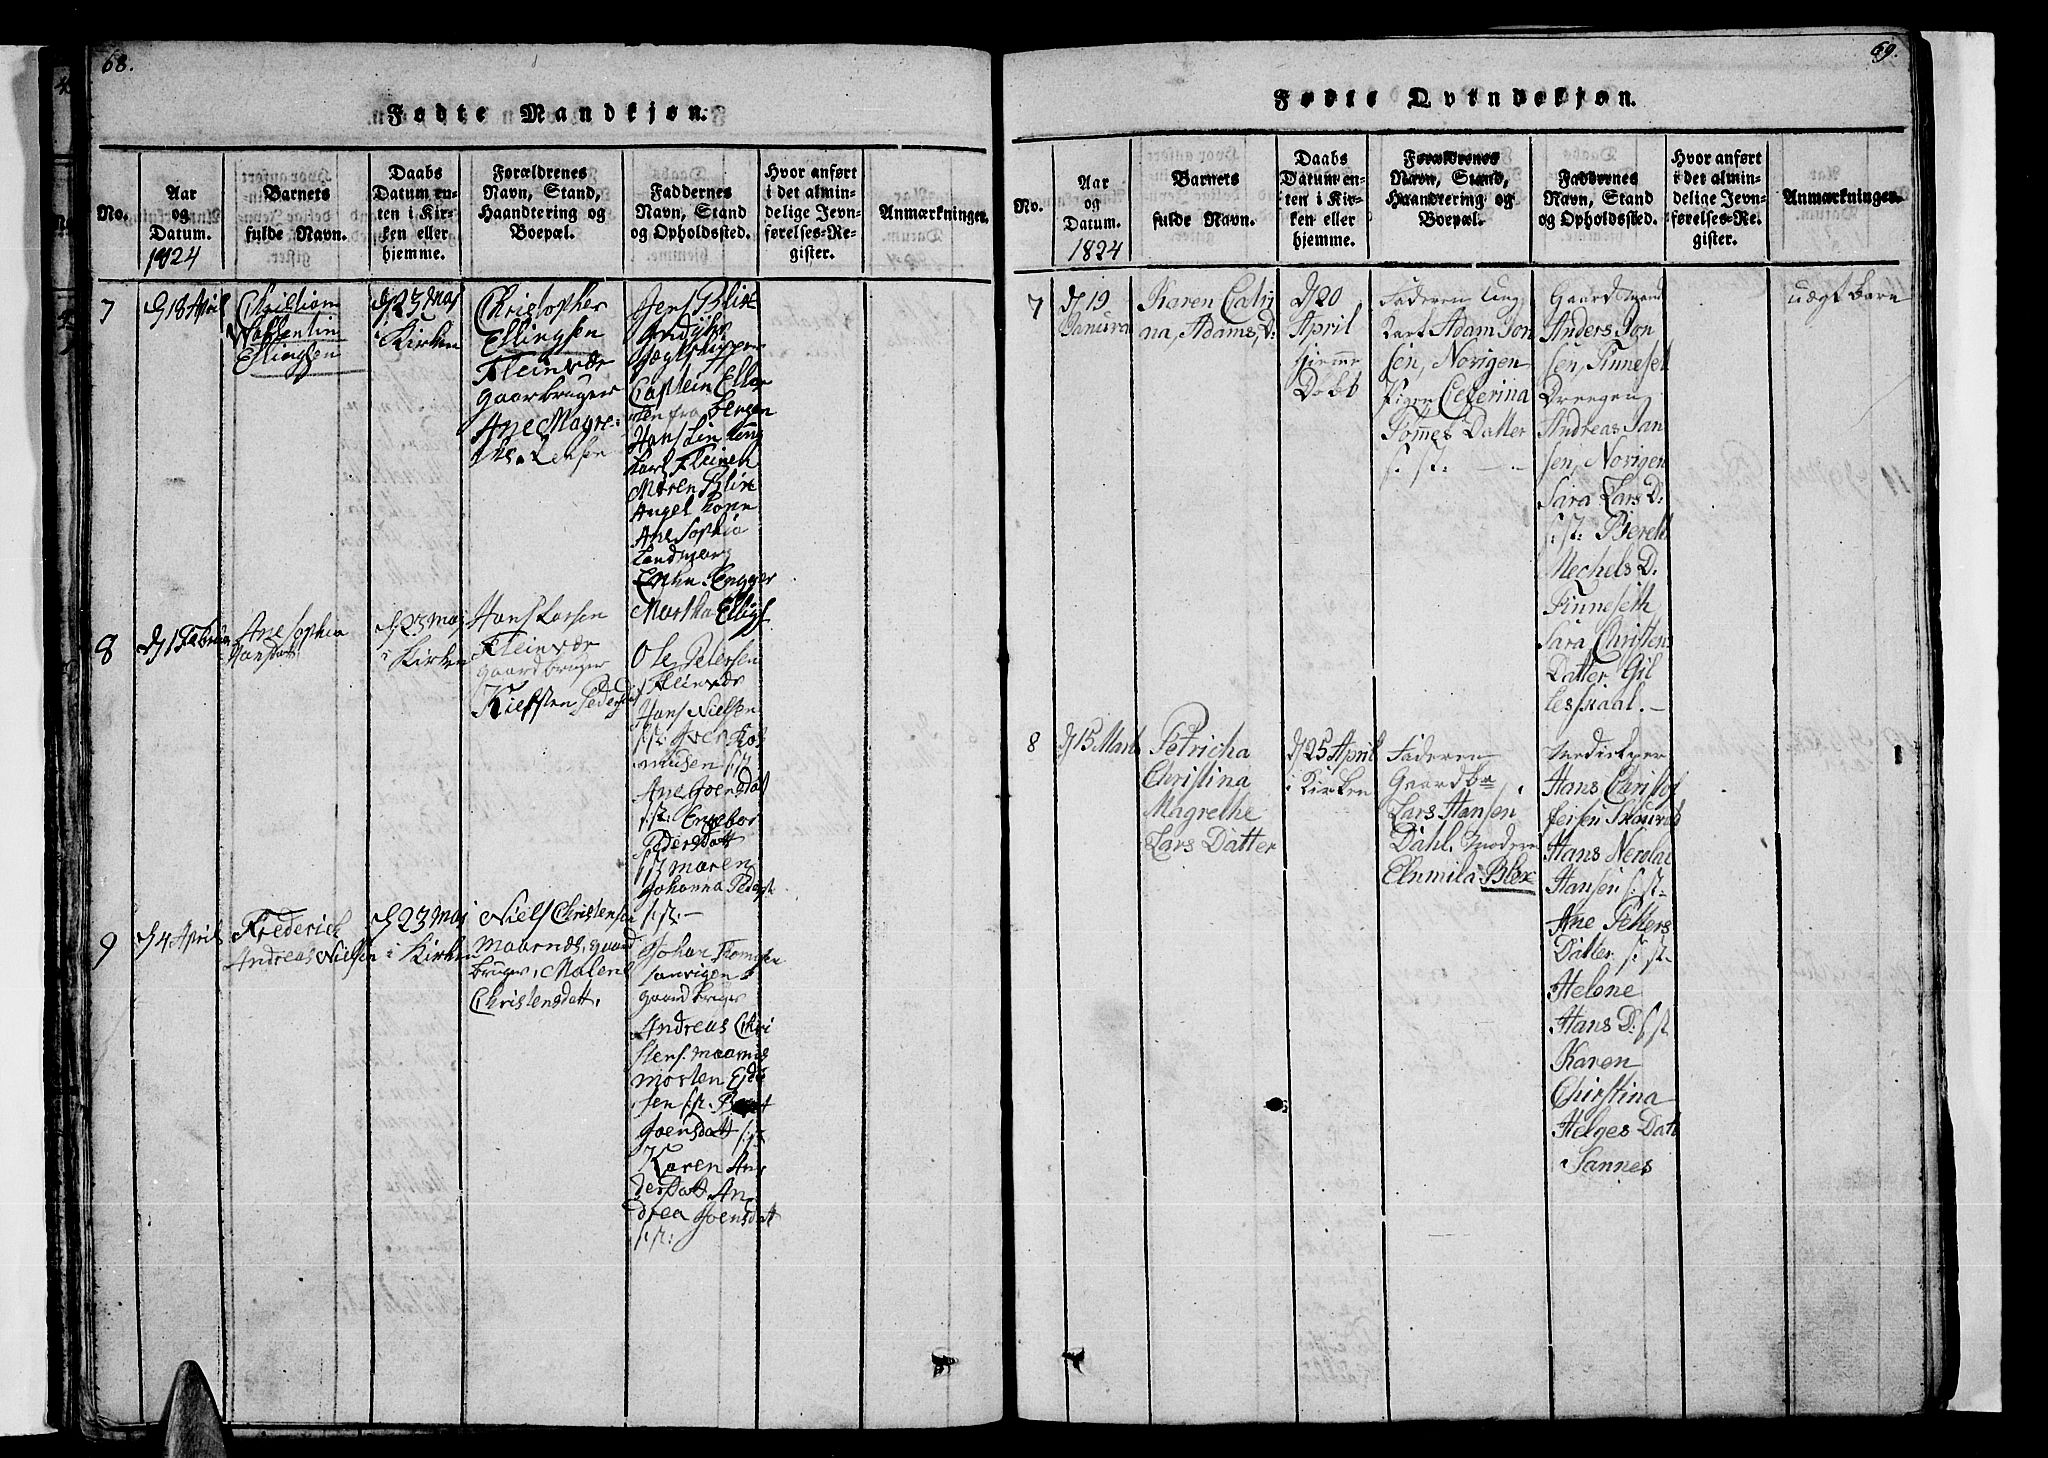 68.
Fødte Mandkjøn.
No.
Aar
og
Datum.
1824
Barnets
fulde Navn.
Daabs
Datum en-
ten i Kir-
ken eller
hjemme.
Forældrenes
Navn, Stand,
Haandtering og
Boepæl.
Faddernes
Navn, Stand
og Opholdssted.
Hvor anført
i det almin-
delige Jevn-
førelses-Re-
gister.
Anmærkninger.
7
d 18 April
Christian
Vallentin
Ellingsen
d 23 Maj
i Kirken
Christopher
Ellingsen
Fleinvær
gaarbruger
Ane Magre-
the
Jens Blix
Captein
sen fra Bergen
Hans
karl Fleinvær
Maren Blix
Angel
Ane Sophia
Martha Ellings
8
d 15 Februar
Ane Sophia
Hansdatt.
d 23 Maj
i Kirken
Hans Larsen
Fleinvær
gaardbruger
Kiersten Peders
Ole Petersen
Fleinvær
Hans Nielsen
s: st: Iver Ras
musen s: st
Ane Joensdat
s: st: Engebor
Pedersdatt
s: st Maren
Johanna Peders
s: st:
9
d 4 April
Frederich
Andreas Nielsen
d 23 Maj
i Kirken
Niels Christensen
maarnes, gaard
bruger, Malene
Christensdatt,
Johan Thomesen
gaardbruger
Andreas Chri
stens. maarnes
morten
sen s: st.
Joensdatt s: st
Karen An
dersdatt An
drea Joensdatt
s: st:
69.
Fødte Qvindekjøn.
No.
Aar
og
Datum.
1824
Barnets
fulde Navn.
Daabs
Datum en-
ten i Kir-
ken eller
hjemme.
Forældrenes
Navn, Stand,
Haandtering og
Boepæl.
Faddernes
Navn, Stand
og Opholdssted.
Hvor anført
i det almin-
delige Jevn-
førelses-Re-
gister.
Anmærkninger.
7
d 19
Januar
Karen
na, Adams, D:
d 20
April
hjemme
Døbt
Faderen Ung
karl Adam Jon
sen, Novigen
Pigen Ceferina
Tommes Datter
s: st:
Gaardmand
Anders Jon
sen, Finneset
Drengen
Andreas Jan
sen, Novigen
Sara Lars D.
s: st: Bereth
Mechels D.
Finneseth
Sara Christens
Datter Gil
lesskaal.
uægt Barn
8
d 15 Marts
Petricha
Christina
Magrethe
Lars Datter
d 25 April
i Kirken
Faderen
Gaardbr
Lars Hansen
Dahl. Moderen
Elnmila Blix
Medhielper
Hans Christof
fersen
Hans Necolai
Hansen s: st-
Ane Petters
Datter s: st-
Helene
Hans D: s: st
Karen
Christina
Helges Datt
Sannes